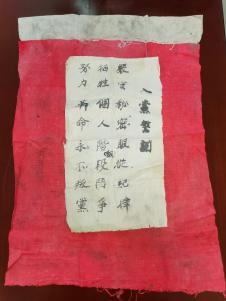 入黨誓詞
嚴守秘密服從紀律
牺牲個人階級鬥爭
努力革命永不叛黨